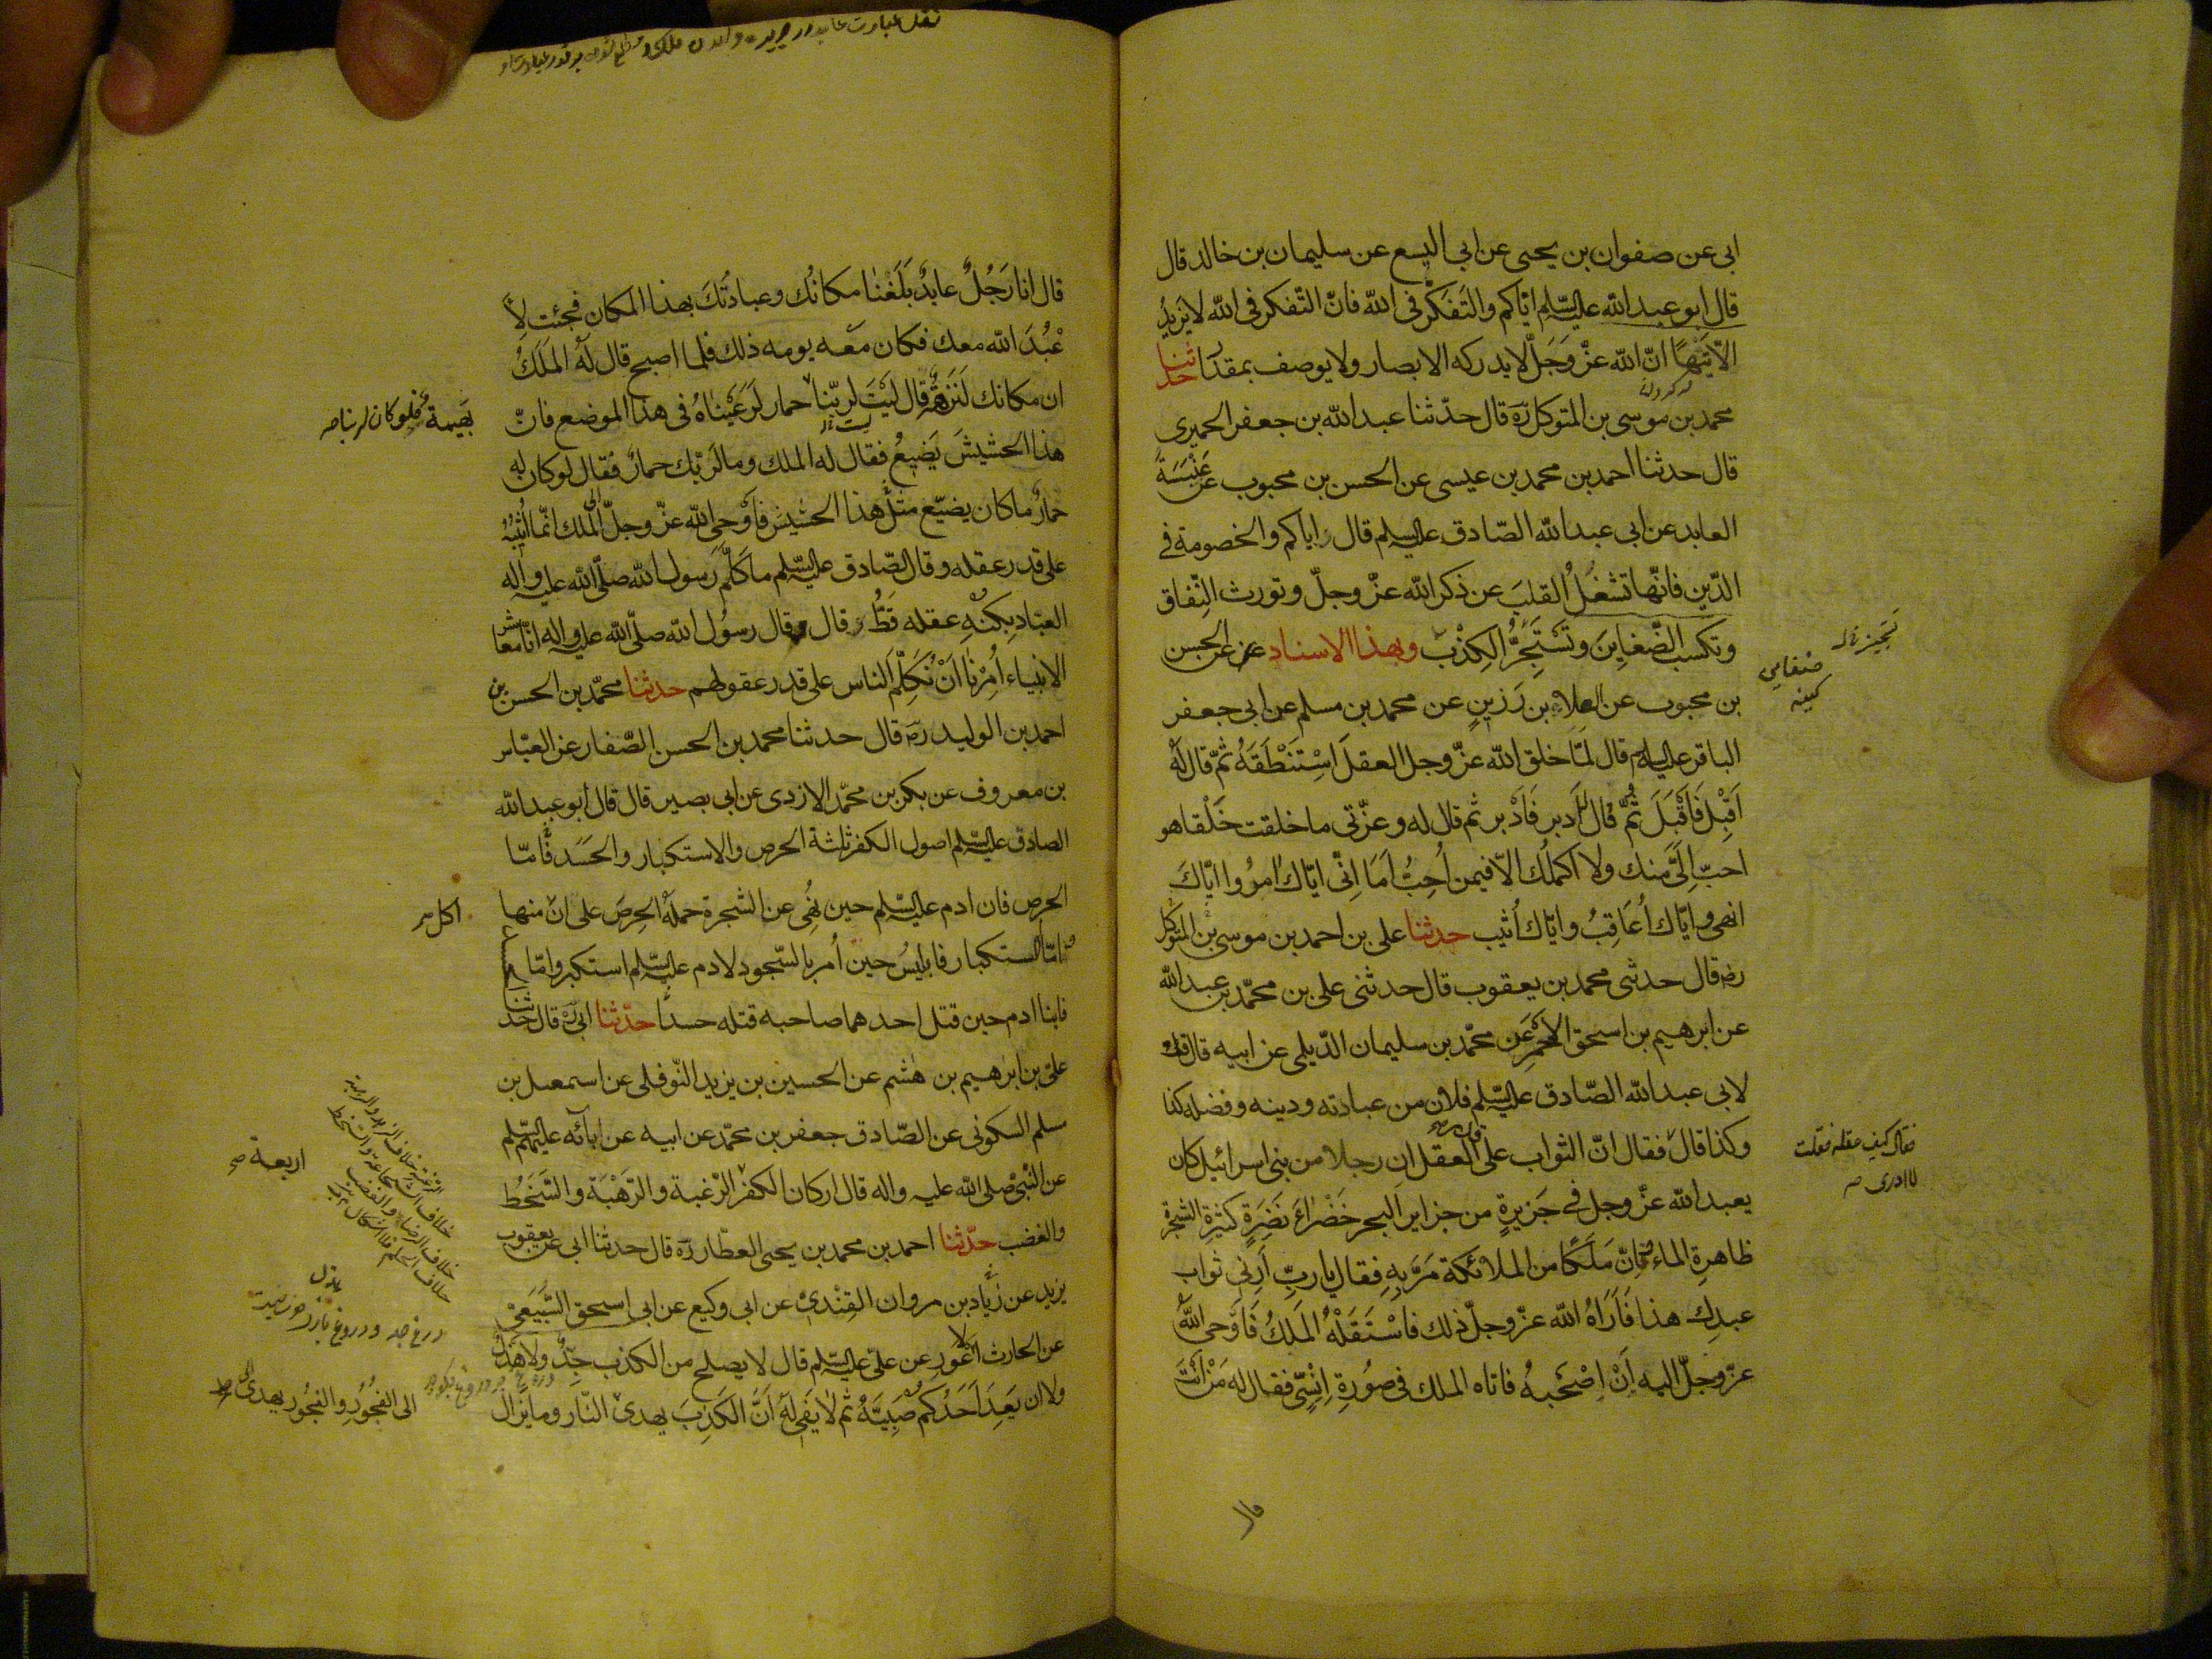 ابى عن صفوان بن يحيى عن ابى اليسع عن سليمان بن خالد قال
قال ابو عبد الله عليه السلم ايّاكم والتَفَكّر فى الله فانّ التّفكر فى الله لا يَزيدُ
الّا تَيْهًا انّ الله عزّ وَجَلّ لا يدركه الابصار ولا يوصف بمقدار حدثنا
محمد بن موسى بن المتوكل ره قال حدّثنا عبد الله بن جعفر الحميرى
قال حدثنا احمد بن محمد بن عيسى عن الحسن بن محبوب عن عَنْبَسَة
العابد عن ابى عبد الله الصّادق عليه السلم قال اياكم والخصومة فى
الدّين فانّها تشغَلُ القلبَ عن ذكر الله عزّ وجلّ وتورث النِّفاق
وتكسب الضّغاين وتَسْتَجِرُّ الكِذْبَ وبهذا الاسناد عن الحسن
بن محبوب عن العلاء بن رَزينٍ عن محمد بن مسلم عن ابى جعفر
الباقر عليه السلم قال لمّا خلق الله عزّ وجل العقلَ اسْتَنْطَقَهُ ثمّ قال لَهُ
اَقْبِل فَاَقْبَلَ ثُمَّ قال له اَدبر فَاَدْبر ثم قال له وعزّتى ما خلقت خَلْقا هو
احبّ اِلَىَّ منك ولا اكملُك الّا فيمن اُحِبُّ اَمَا اِنّى ايّاك امرُ وايّاكَ
انهى وايّاك اُعَاقِبُ وايّاك اُثيب حدثنا على بن احمد بن موسى بن المتوكل
رضه قال حدثنى محمد بن يعقوب قال حدثنى على بن محمّد بن عبد الله
عن ابرهيم بن اسحق الاحمر عَن محمّد بن سليمان الدّيلمى عن ابيه قال قلت
لابى عبد الله الصّادق عليه السّلم فلان من عبادته ودينه وفضله كذا
وكذا قال فقال انّ الثواب على قدر العقل ان رجلا من بنى اسرائيل كان
يعبد الله عزّ وجل فى جَزيرةٍ من جزاير البحر خَضْراءَ نَضِرَةٍ كثيرة الشجرة
ظاهرةِ الماء وانّ مَلَكًا من الملائكة مَرّ بِهِ فقال يا ربّ اَرِنى ثواب
عبدِك هذا فَاَرَاهُ الله عزّ وجلّ ذلك فاسْتَقَلّهُ المَلكُ فَاَوحى اللهُ
عزّ وجلّ اليه اَنْ اِصْحَبهُ فاتاه الملك فى صُورَةِ اِنْسِىّ فقال له مَنْ اَنْتَ
ضغاين
كينه
فقال كيف عقله فقلت
لا ادرى صح
قال
قال انا رَجُلٌ عابدٌ بَلَغَنَا مكانُك وعبادتُكَ بهذا المكان فجئت لِاَ
عْبُدَ الله معك فكان مَعَه يومه ذلك فلما اصبح قال لَهُ المَلَكُ
ان مكانك لَنَزِهَةٌ قال لَيْتَ لرَبّنا حمار لَرَعَيْناهُ فى هذا الموضع فانّ
هذا الحشيشَ يَضيعُ فقال له الملك وما لرَبّك حمارٌ فقال لو كان له
حمارٌ ما كان يضيّع مثلُ هذا الحشيش فاَوْحى الله عزّ وجلّ الى الملك انّما اُثيبُهُ
على قدر عقله وقال الصّادق عليه السّلم ما كَلّمَ رَسول الله صلّى الله عليه وآله
العبادَ بِكُنْهِ عقله قَطُّ قال وقال رسوُل الله صلّى الله عليه واله انّا معاشر
الانبياء اُمِرْنا اَنْ نُكَلّمَ الناس على قدر عقولهم حدثنا محمّد بن الحسن بن
احمد بن الوليد ره قال حدثنا محمد بن الحسن الصّفار عن العبّاس
بن معروف عن بكر بن محمّد الازدى عن ابى بصير قال قال ابو عبد الله
الصادق عليه السّلم اصول الكفر ثلثة الحرص والاستكبار والحَسَد فامّا
الحرص فان ادم عليه السّلم حين نُهِىَ عن الشجرة حملهُ الحِرص على ان منها
وامّا الاستكبار فابليسُ حين اُمر بالسّجود لادم عليه السّلم استكبر وامّا
فابنا ادم حين قتل احدهما صاحبه قتله حسدًا حدّثنا ابى ره قال حدثنا
على بن ابرهيم بن هشم عن الحسين بن يزيد النّوفلى عن اسمعيل بن
مسلم السكونى عن الصّادق جعفر بن محمّد عن ابيه عن ابآئه عليهم السّلم
عن النّبىّ صلى الله عليه واله قال اركان الكفر الرّغبة والرّهْبَة والسّخطُ
والغضب حدّثنا احمد بن محمد بن يحيى العطّار ره قال حدثنا ابى عن يعقوب
يزيد عن زياد بن مروان القِنْدىّ عن ابى وكيع عن ابى اسحق السَّبيعىّ
عن الحارث الاعْوَر عن علىّ عليه السّلم قال لا يصلح من الكذب جِدٌّ ولا هَزْلٌ
ولا ان يَعِدَ اَحَدُكم صَبِيَّهُ ثم لا يَفى لَهُ اَنّ الكَذِبَ يهدى النّار وما يَزال
بهيمة فلو كان لربنا صح
اكل
اربعة صح
الى الفجُورِ والفجُور يهدى الى صح